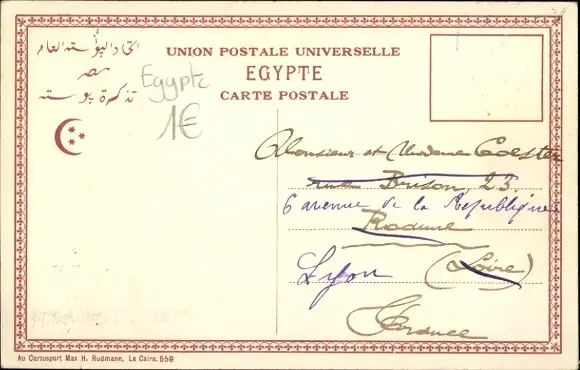 اتحاد البوسته العام
مصر
تذكرة بوسته
Egypte
1€
UNION POSTALE UNIVERSELLE
EGYPTE
CARTE POSTALE
Monsieur et Madame Coester
rue Brison, 23
6 avenue de la République
Roanne
Lyon (Loire)
France
Au Cartosport Max H. Rudmann, Le Caire. 559